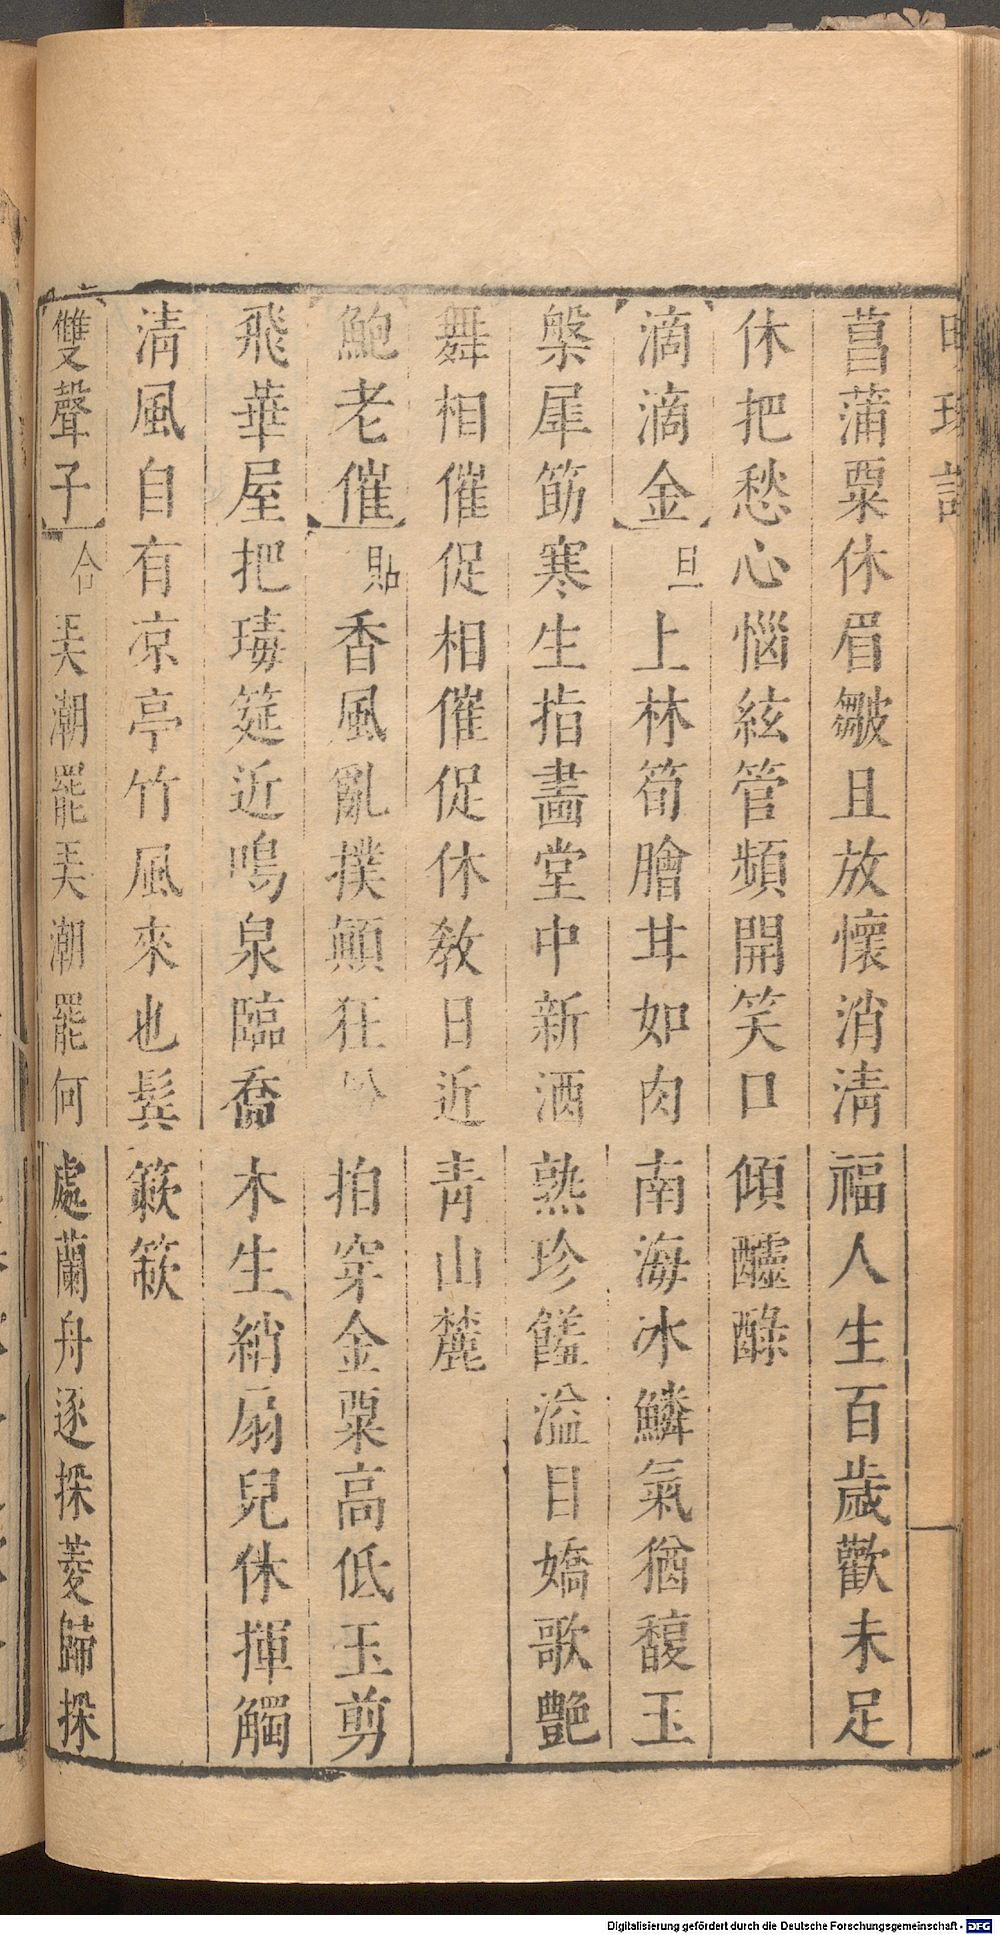 菖蒲粟休眉皺且放懷消清福人生百歲歡未足
休把愁心惱絃管頻開笑口傾醽醁
滴滴金旦上林筍膾甘如肉南海冰鱗氣猶馥玉
槃犀筯寒生指畵堂中新酒熟珍饈溢目嬌歌艶
舞相催促相催促休敎日近靑山麓
鮑老催貼香風亂撲顚狂拍穿金粟高低玉剪
飛華屋把瑇筵近鳴泉臨喬木生綃扇兒休揮觸
淸風自有凉亭竹風來也鬓簌簌
雙聲子合天潮罷天潮罷何處蘭舟逐採菱歸採
Digitalisierung gefördert durch die Deutsche Forschungsgemeinschaft - DFG